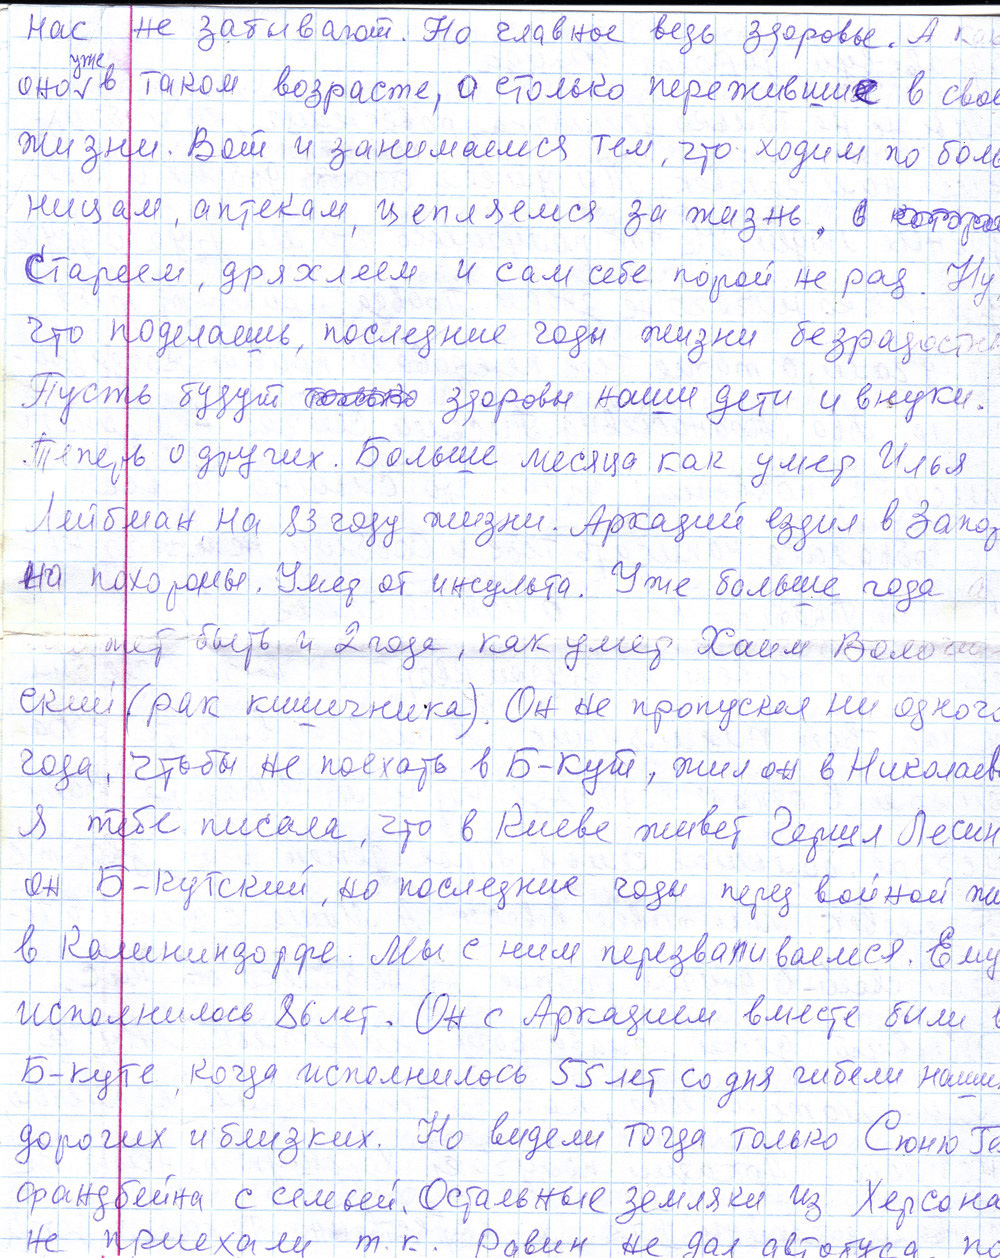 нас не забывают. Но главное ведь здоровье. А как
оно уже в таком возрасте, а столько пережившие в свое
жизни. Вот и занимаемся тем, что ходим по боль
ницам, аптекам, цепляемся за жизнь, в которой
стареем, дряхлеем и сам себе порой не рад. Ну
что поделаешь, последние годы жизни безрадостны
Пусть будут только здоровы наши дети и внуки.
Теперь о других. Больше месяца как умер Илья
Лейбман на 83 году жизни. Аркадий ездил в Запор
на похороны. Умер от инсульта. Уже больше года
жет быть и 2 года, как умер Хаим
ский (рак кишечника). Он не пропускал ни одного
года, чтобы не поехать в Б-Кут, жил он в Николаев
Я тебе писала, что в Киеве живет Гершил Лесин
он Б-Кутский, но последние годы перед войной жи
в Калининдорфе. Мы с ним перезваниваемся. Ему
исполнилось 86 лет. (Он с Аркадием вместе были в
Б-куте, когда исполнилось 55 лет со дня гибели наших
дорогих и близких. Но видели тогда только Сюню Ге
франдбейна с семьей. Остальные земляки из Херсона
не приехали т.к. Равин не дал автобуса, по